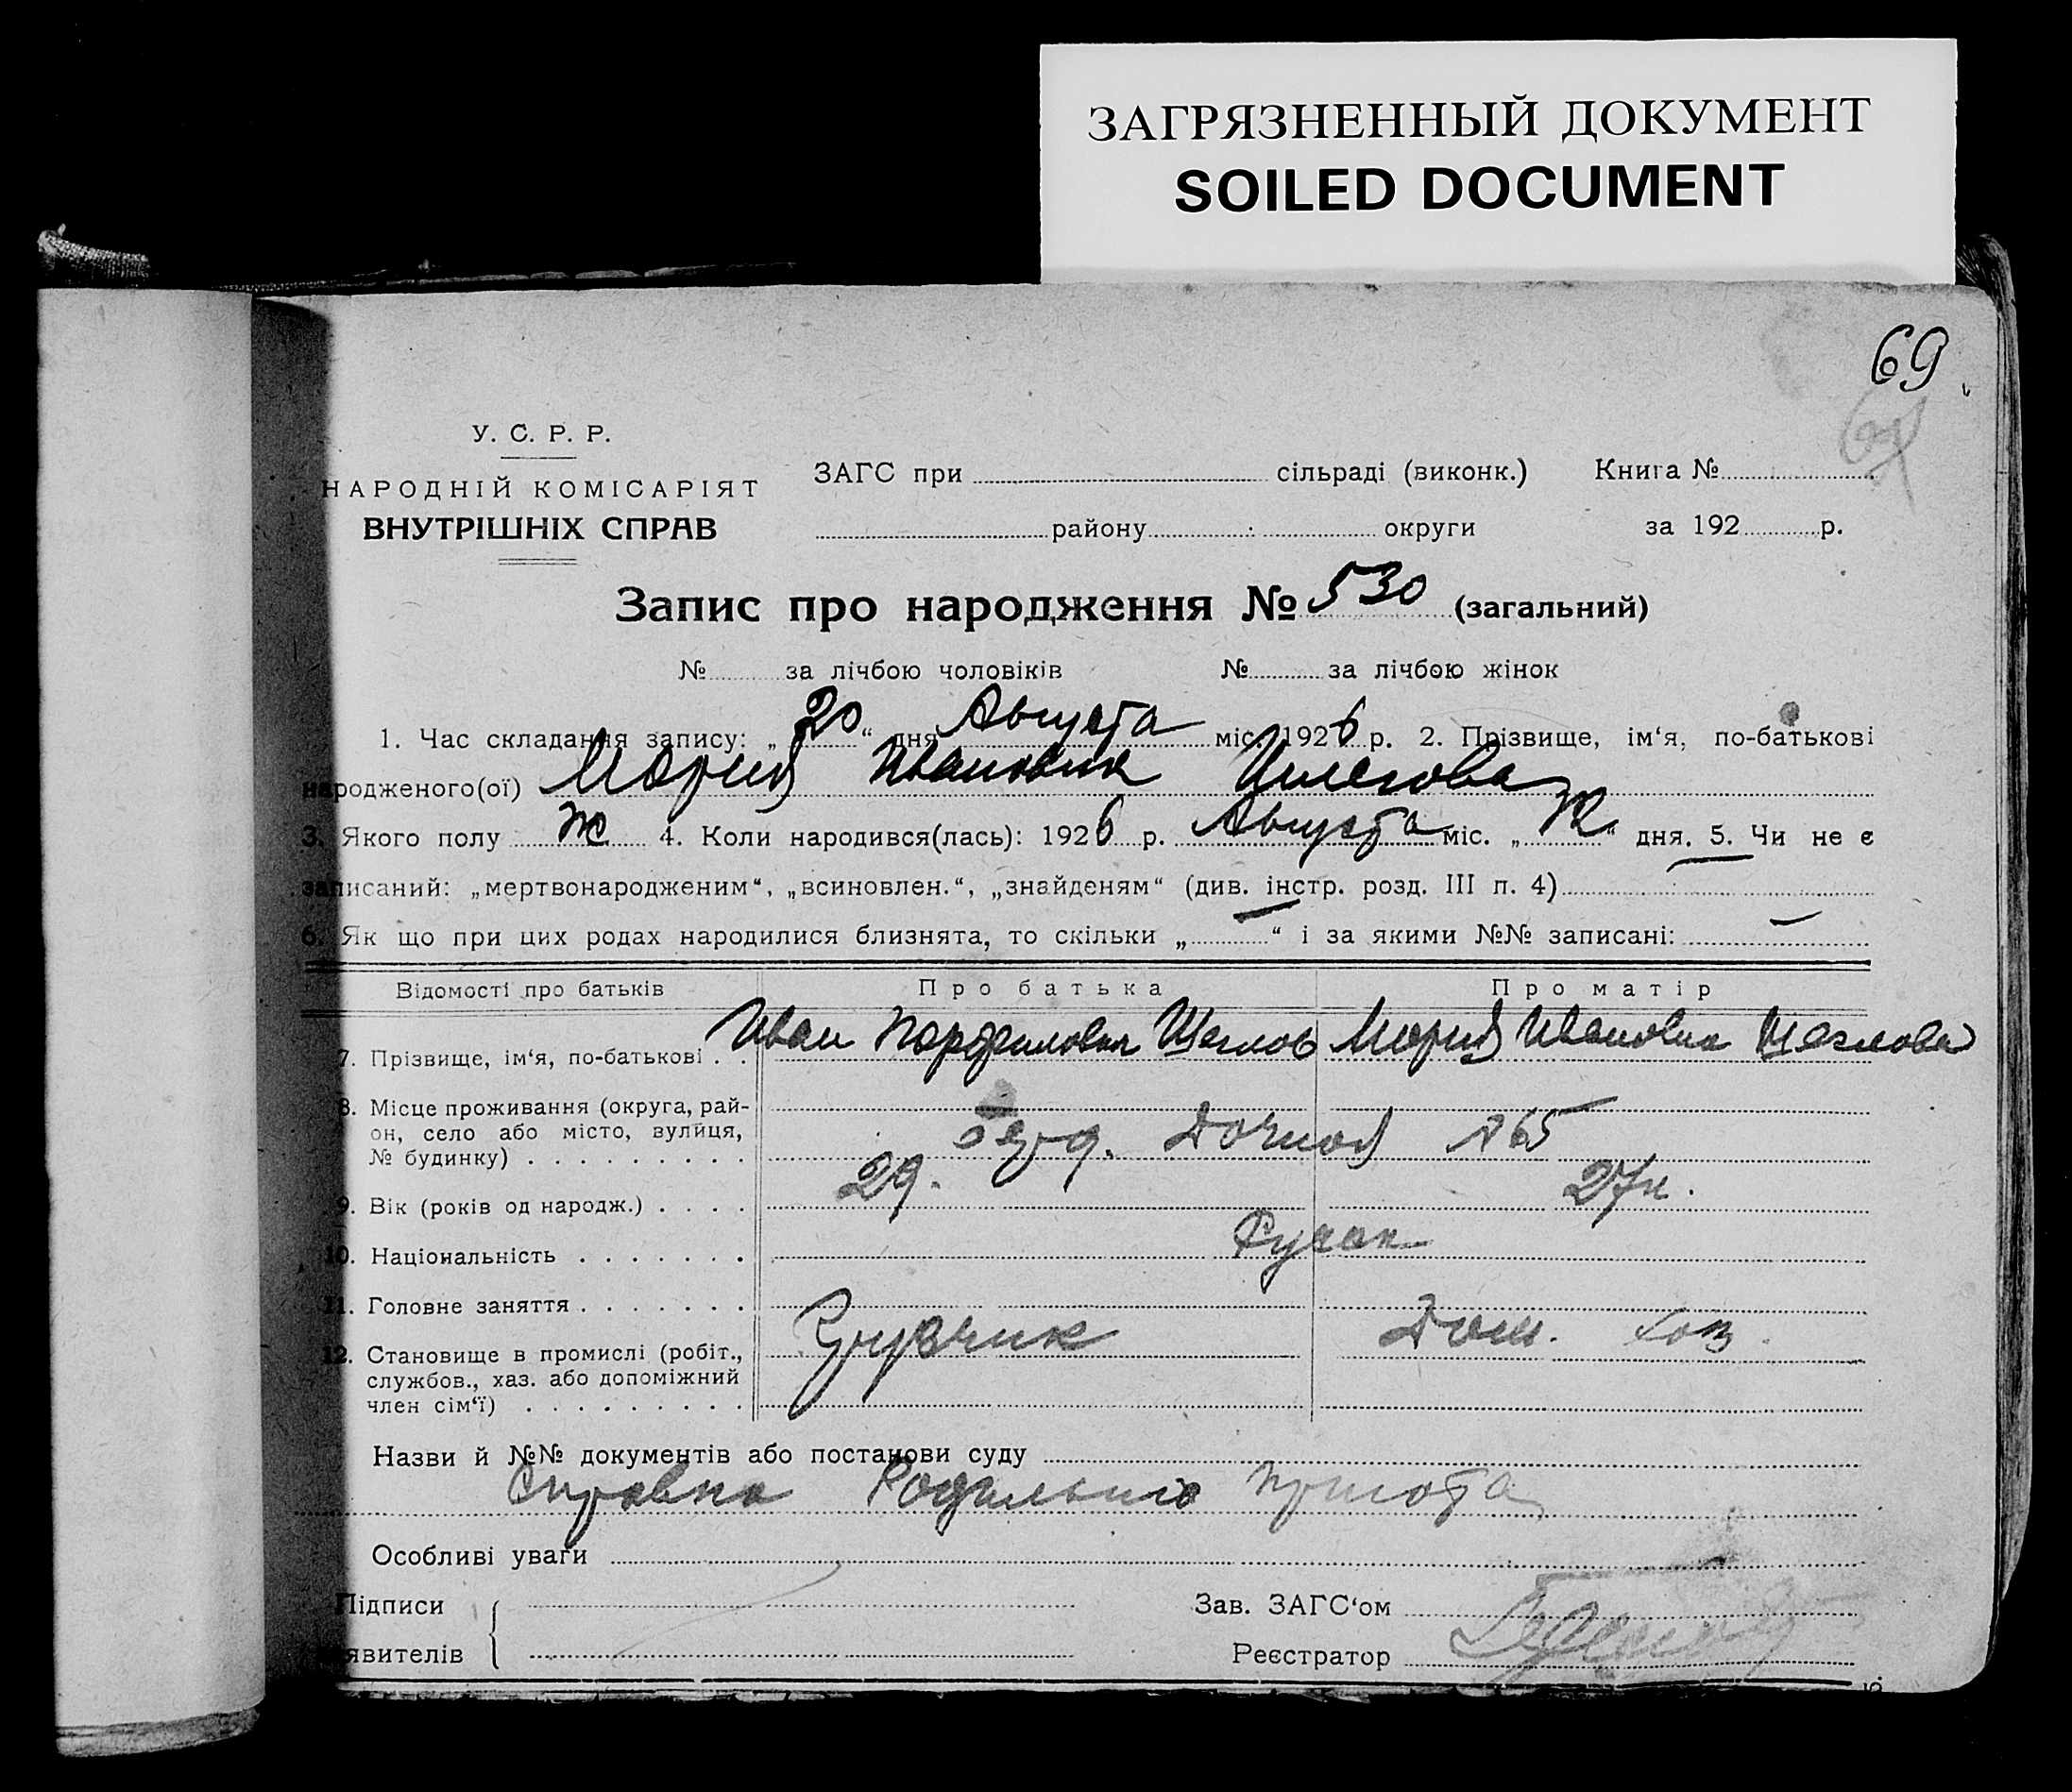 ЗАГРЯЗНЕННЫЙ ДОКУМЕНТ
SOILED DOCUMENT
69
У. С. Р. Р.
НАРОДНІЙ КОМІСАРІЯТ
ВНУТРІШНІХ СПРАВ
ЗАГС при сільраді (виконк.) Книга №
району округи за 192 р.
Запис про народження № 530 (загальний)
№ за лічбою чоловіків № за лічбою жінок
1. Час складання запису: „20“ дня Августа міс. 1926 р. 2. Прізвище, ім‘я, по-батькові
народженого(ої) Мария Ивановна
3. Якого полу ж 4. Коли народився(лась): 1926 р. Августа міс. „12“ дня. 5. Чи не є
записаний: „мертвонародженим“, „всиновлен.“, „знайденям“ (див. інстр. розд. III п. 4)
6. Як що при цих родах народилися близнята, то скільки „—“ і за якими №№ записані: —
Відомості про батьків Про батька Про матір
7. Прізвище, ім‘я, по-батькові . . Иван Парфилович Щеглов Мария Ивановна Щеглова
8. Місце проживання (округа, рай-
он, село або місто, вулиця,
№ будинку) . . . . . . . . . 65
9. Вік (років од народж.) . . . . 29. 27л.
10. Національність . . . . . . .
11. Головне заняття . . . . . . .
12. Становище в промислі (робіт., Грузчик Дом. хоз.
службов., хаз. або допоміжний
член сім‘ї) . . . . . . . . .
Назви й №№ документів або постанови суду
Справка Родильного приюта
Особливі уваги
Підписи Зав. ЗАГС‘ом
явителів Реєстратор